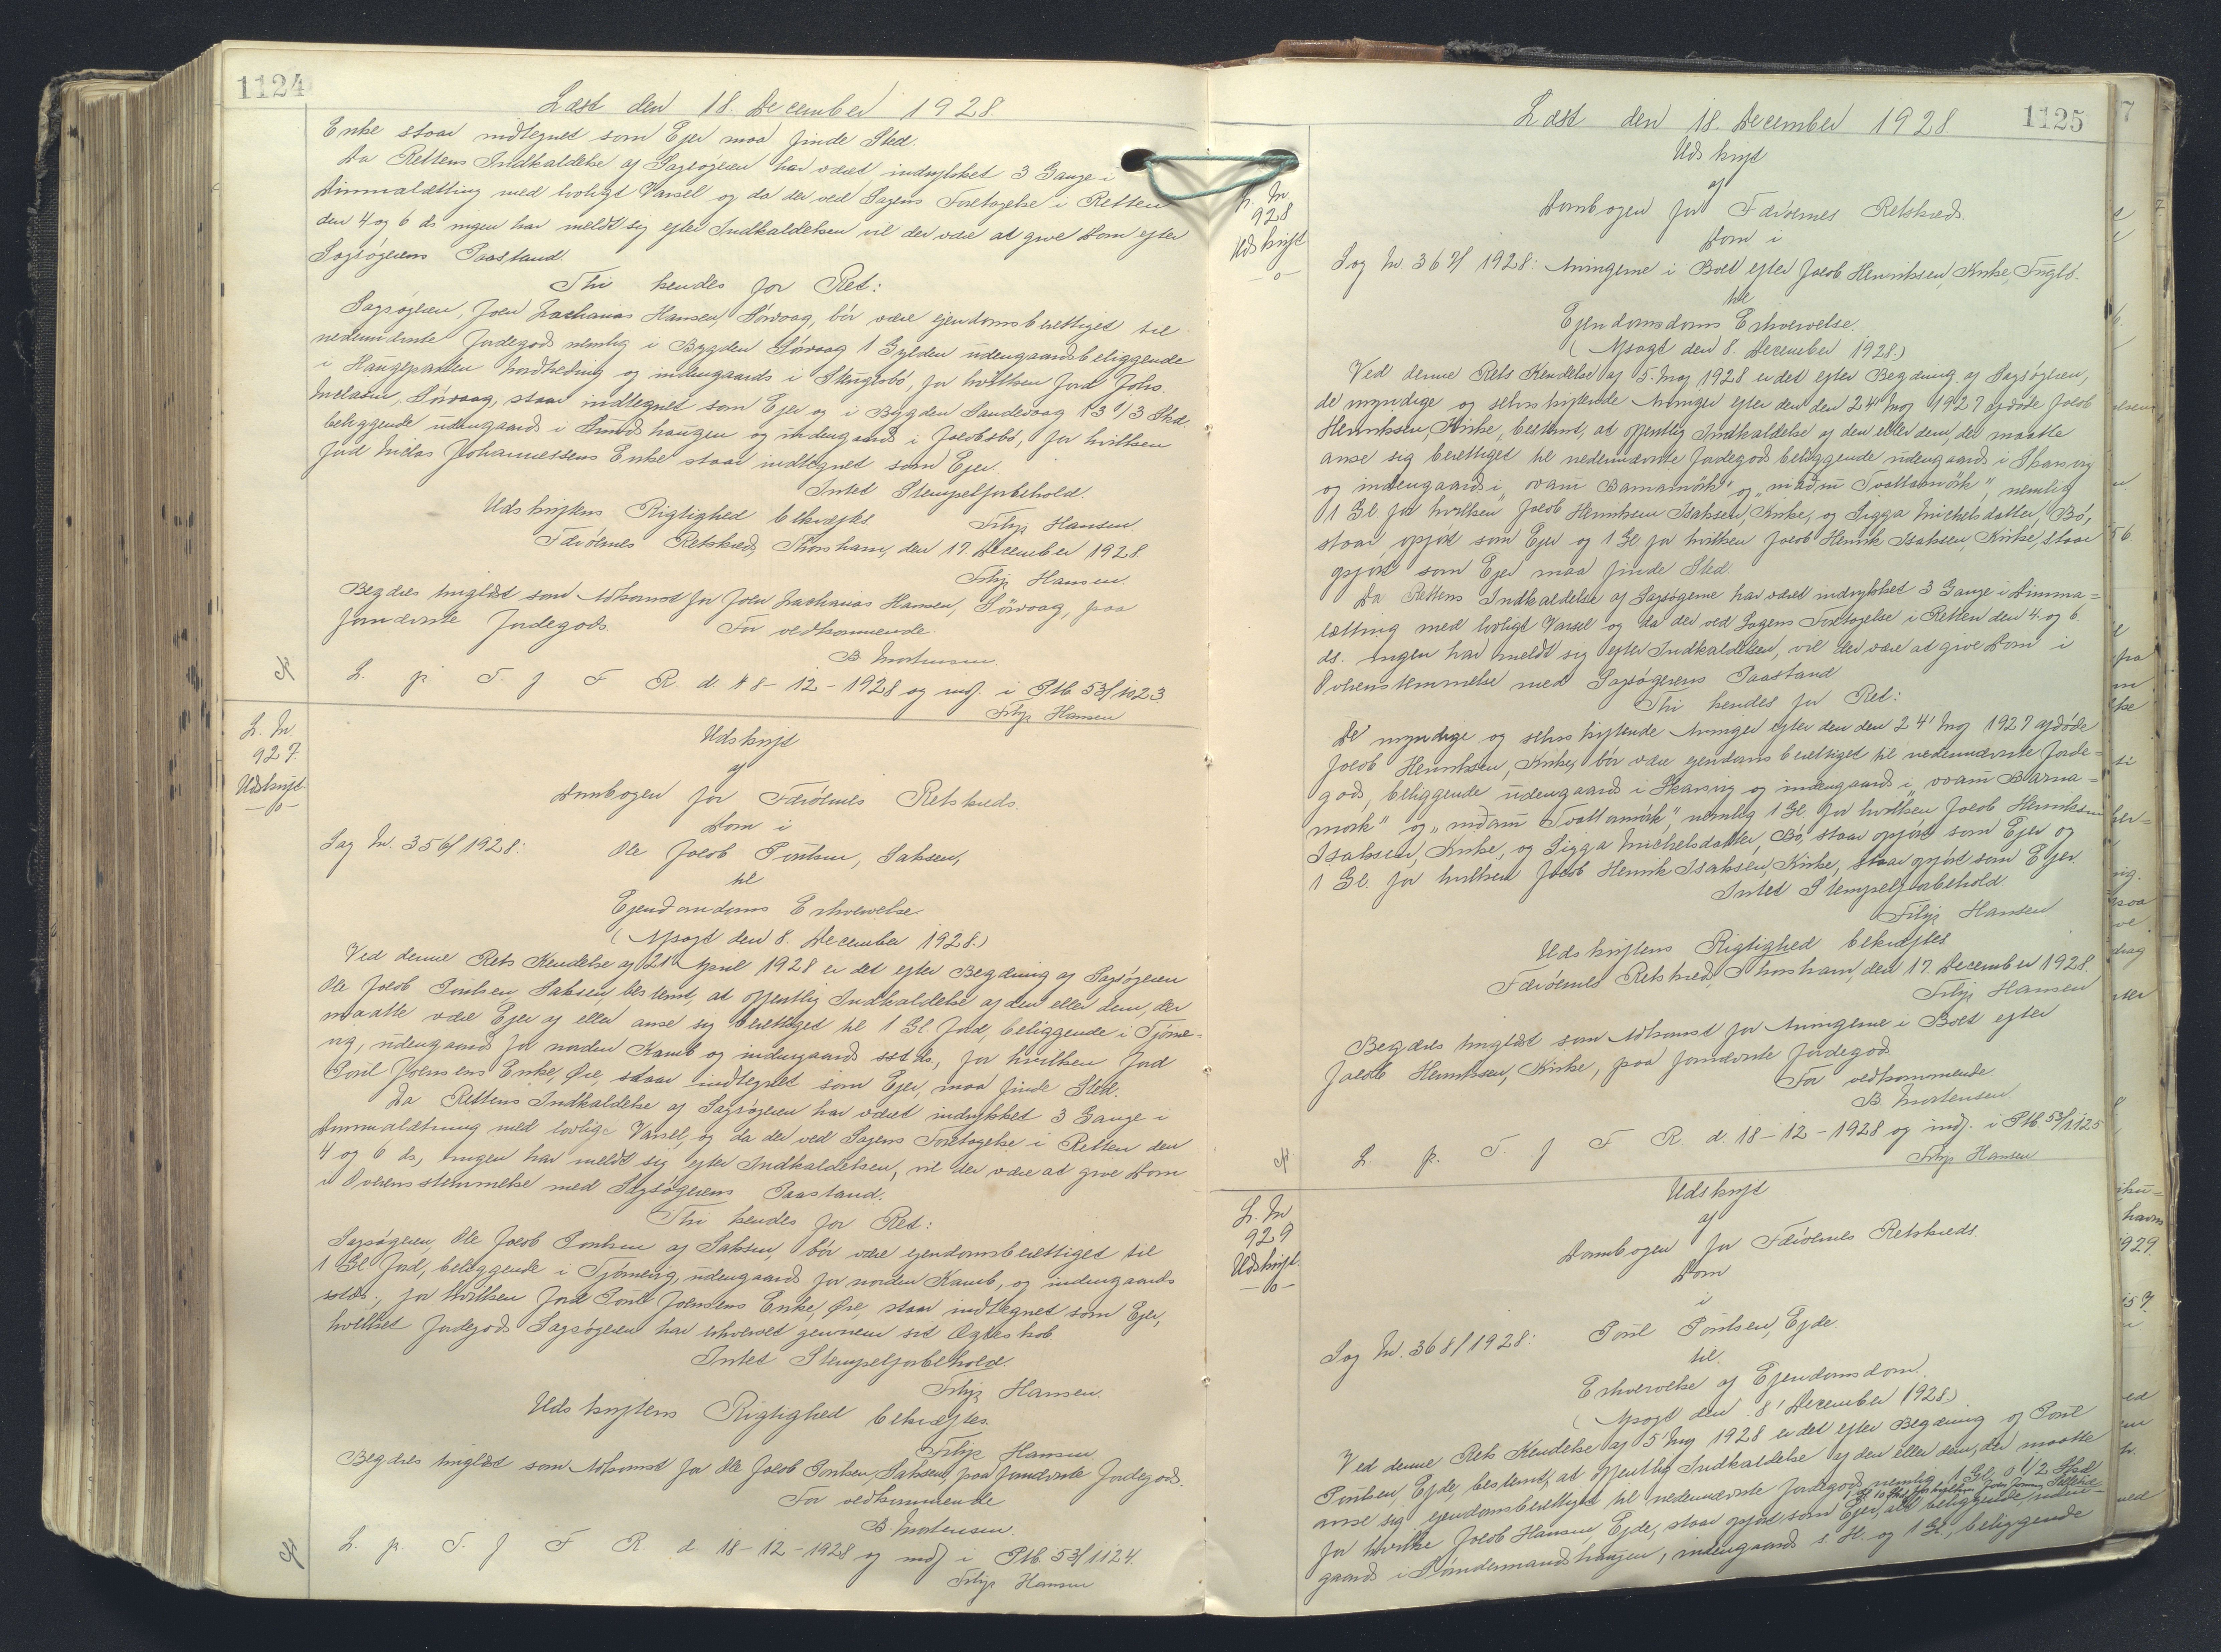 1124
Læst den 18. December 1928.
Enke staar indtegnet som Ejer maa finde Sted.
Da Rettens Indkaldelse af Sagsøgeren har været indrykket 3 Gange i
Dimmalætting med lovligt Varsel og da der ved Sagens Foretagelse i Retten
den 4 og 6 ds ingen har meldt sig efter Indkaldelsen vil der være at give Dom efter
Sagsøgerens Paastand.
Thi kendes for Ret:
Sagsøgeren, Joen Zacharias Hansen, Sørvaag, bør være ejendomsberettiget til
nedennævnte Jordegods nemlig i Bygden Sørvaag 1 Gylden udengaardsbeliggende
i Haugeparten og indengaards i for hvilken Jord Johs.
Niclasen, Sørvaag, staar indtegnet som Ejer og i Bygden Sandevaag 13 1/3 Skd.
beliggende udengaards i haugen og indengaards i Jacobsbø, for hvilken
Jord Niclas Johannessens Enke staar indtegnet som Ejer.
Intet Stempelforbehold.
Filip Hansen
Udskriftens Rigtighed bekræftes.
Færøernes Retskreds, Thorshavn, den 17. December 1928
Filip Hansen.
Begæres tinglæst som Adkomst for Joen Zacharias Hansen, Sörvaag, paa
fornævnte Jordegods.
For vedkommende.
B. Mortensen.
L. p. T. f F R. d. 18-12-1928 og indf. i Ptb. 53/1123
Filip Hansen
L. Nr.
927.
Udskrift
-0-
Udskrift
af
Dombogen for Færöernes Retskreds.
Dom i
Sag Nr. 356/1928: Ole Jacob Poulsen, Saksen,
til
Ejendomdoms Erhvervelse.
(Afsagt den 8. December 1928.)
Ved denne Rets Kendelse af 21' April 1928 er det efter Begæring af Sagsøgeren
Ole Jacob Poulsen, Saksen, bestemt, at offentlig Indkaldelse af den eller dem, der
maatte være Ejer af eller anse sig berettiget til 1 Gl. Jord, beliggende i Tjørne-
vig, udengaards for norden Kamb og indengaards sstds., for hvilken Jord
Poul Joensens Enke, Øre, staar indtegnet som Ejer, maa finde Sted.
Da Rettens Indkaldelse af Sagsøgeren har været indrykket 3 Gange i
Dimmalætting med lovlige Varsel, og da der ved Sagens Foretagelse i Retten den
4 og 6 ds., ingen har meldt sig efter Indkaldelsen, vil der være at give Dom
i Overensstemmelse med Sagsøgerens Paastand.
Thi kendes for Ret:
Sagsøgeren, Ole Jacob Poulsen af Saksen, bør være ejendomsberettiget til
1 Gl. Jord, beliggende i Tjørnevig, udengaards for norden Kamb, og indengaards
sstds., for hvilken Jord Poul Joensens Enke, Øre, staar indtegnet som Ejer,
hvilket Jordegods Sagsøgeren har erhvervet gennem sit Ægteskab.
Intet Stempelforbehold.
Filip Hansen.
Udskriftens Rigtighed bekræftes.
Filip Hansen
Begæres tinglæst som Adkomst for Ole Jacob Poulsen, Saksen, paa fornævnte Jordegods.
For vedkommende
B. Mortensen.
L. p. T. f F R. d. 18-12-1928 og indf i Ptb. 53/1124.
Filip Hansen
Læst den 18. December 1928
1125
L. Nr.
928
Udskrift
-0-
Udskrift
af
Dombogen for Færöernes Retskreds.
Dom i
Sag Nr. 367/1928: Arvingerne i Boet efter Jacob Henriksen, Kirke, Fuglø.
til
Ejendomsdoms Erhvervelse.
(Afsagt den 8. December 1928.)
Ved denne Rets Kendelse af 5. Maj 1928 er det efter Begæring af Sagsøgeren,
de myndige og selvskiftende Arvinger efter den den 24' Maj 1927 afdøde Jacob
Henriksen, Kirke, bestemt, at offentlig Indkaldelse af den eller dem der maatte
anse sig berettiget til nedennævnte Jordegods beliggende udengaards i Skarsvig
og indengaards i "ovam Barnamörk" og "niđam Tvattamörk", nemlig
1 Gl for hvilken Jacob Henriksen Isaksen, Kirke, og Sigga Michelsdatter, Bö,
staar opført som Ejer og 1 Gl. for hvilken Jacob Henrik Isaksen, Kirke, staar
opført som Ejer maa finde Sted.
Da Rettens Indkaldelse af Sagsøgerne har været indrykket 3 Gange i Dimma=
lætting med lovligt Varsel og da der ved Sagens Foretagelse i Retten den 4. og 6.
ds. ingen har meldt sig efter Indkaldelsen, vil der være at give Dom i
Overensstemmelse med Sagsøgerens Paastand
Thi kendes for Ret:
De myndige og selvskiftende Arvinger efter den den 24' Maj 1927 afdøde
Jacob Henriksen, Kirke, bör være ejendomsberettiget til nedennævnte Jorde=
gods, beliggende udengaards i Skarsvig og indengaards i "ovam Barna=
mørk" og "niđam Tvattamörk", nemlig 1 Gl. for hvilken Jacob Henriksen
Isaksen, Kirke, og Sigga Michelsdatter, Bö, staar opført som Ejer og
1 Gl. for hvilken Jacob Henrik Isaksen, Kirke, staar opført som Ejer.
Intet Stempelforbehold.
Filip Hansen
Udskriftens Rigtighed bekræftes
Færöernes Retskreds, Thorshavn, den 17. December 1928.
Filip Hansen
Begæres tinglæst som Adkomst for Arvingerne i Boet efter
Jacob Henriksen, Kirke, paa fornævnte Jordegods
For vedkommende.
B. Mortensen
L. p. T. f F R. d. 18-12-1928 og indf. i Ptb. 53/1125
Filip Hansen
L. Nr
929
Udskrift
-0-
Udskrift
af
Dombogen for Færöernes Retskreds.
Dom
i
Sag Nr. 368/1928: Poul Poulsen, Ejde.
til.
Erhvervelse af Ejendomsdom.
(Afsagt den 8' December 1928.)
Ved denne Rets Kendelse af 5 Maj 1928 er det efter Begæring af Poul
Poulsen, Ejde, bestemt, at offentlig Indkaldelse af den eller dem, der maatte
anse sig ejendomsberettiget til nedennævnte Jordegods nemlig 1 Gl. 0 1/2 Skd
for hvilke Jacob Hansen Ejde, staar opført som Ejer, alt beliggende uden=
gaards i Søndermandshaugen, indengaards s. H. og 1 Gl., beliggende